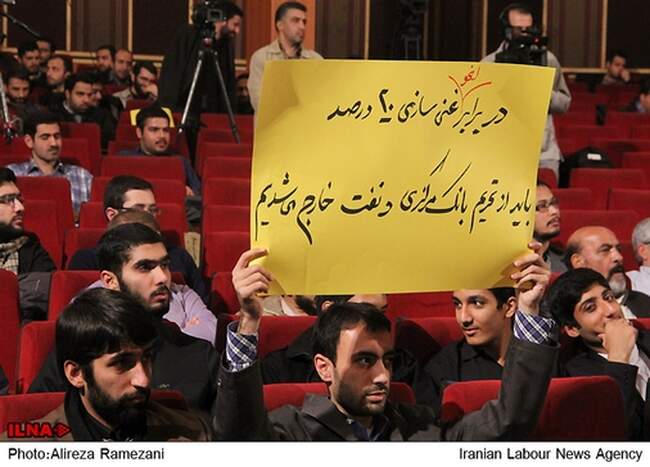 لغو
در برابر غنی سازی ۲۰ درصد
باید از تحریم بانک مرکزی و نفت خارج می شدیم
ILNA
Photo:Alireza Ramezani
Iranian Labour News Agency